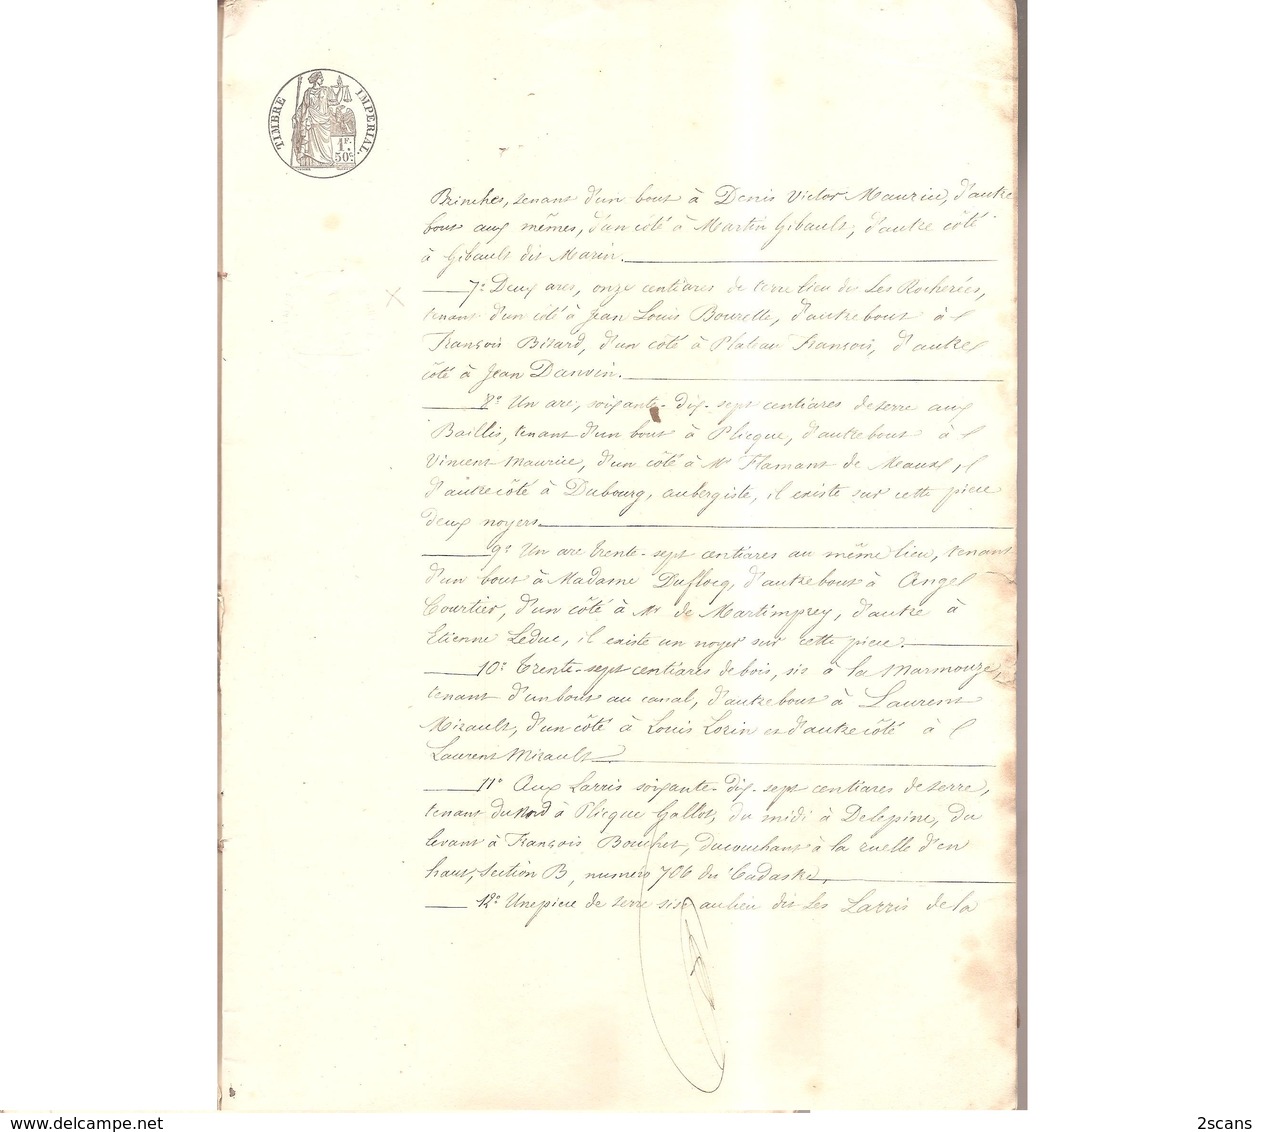 TIMBRE IMPERIAL.
1F.
50c.
Brinches, tenant d'un bout à Denis Victor Maurice, d'autre
bout aux mêmes, d'un côté à Martin Gibault, d'autre côté
à Gibault dit Marin.
7° Deux ares, onze centiares de terre lieu dit Les Rocherées,
tenant d'un côté à Jean Louis Bourette, d'autre bout à
François Bizard, d'un côté à Plateau François, d'autre
côté à Jean Danvin.
8° Un are, soixante-dix-sept centiares de terre aux
Baillis, tenant d'un bout à Plicque, d'autre bout à
Vincent Maurice, d'un côté à Mr Flamant de Meaux,
d'autre côté à Dubourg, aubergiste, il existe sur cette pièce
deux noyers.
9° Un are trente-sept centiares au même lieu, tenant
d'un bout à Madame Duflocq, d'autre bout à Ange
Courtier, d'un côté à Mr de Martimprey, d'autre à
Etienne Leduc, il existe un noyer sur cette pièce.
10° Trente-sept centiares de bois, sis à la Marmouze,
tenant d'un bout au canal, d'autre bout à Laurent
Mirault, d'un côté à Louis Lorin et d'autre côté à
Laurent Mirault.
11° Aux Larris soixante-dix-sept centiares de terre,
tenant du nord à Plicque Gallot, du midi à Delepine, du
levant à François Bouchet, du couchant à la ruelle d'en
haut, section B, numéro 706 du Cadastre,
12° Une pièce de terre sise au lieu dit Les Larris de la
2scans